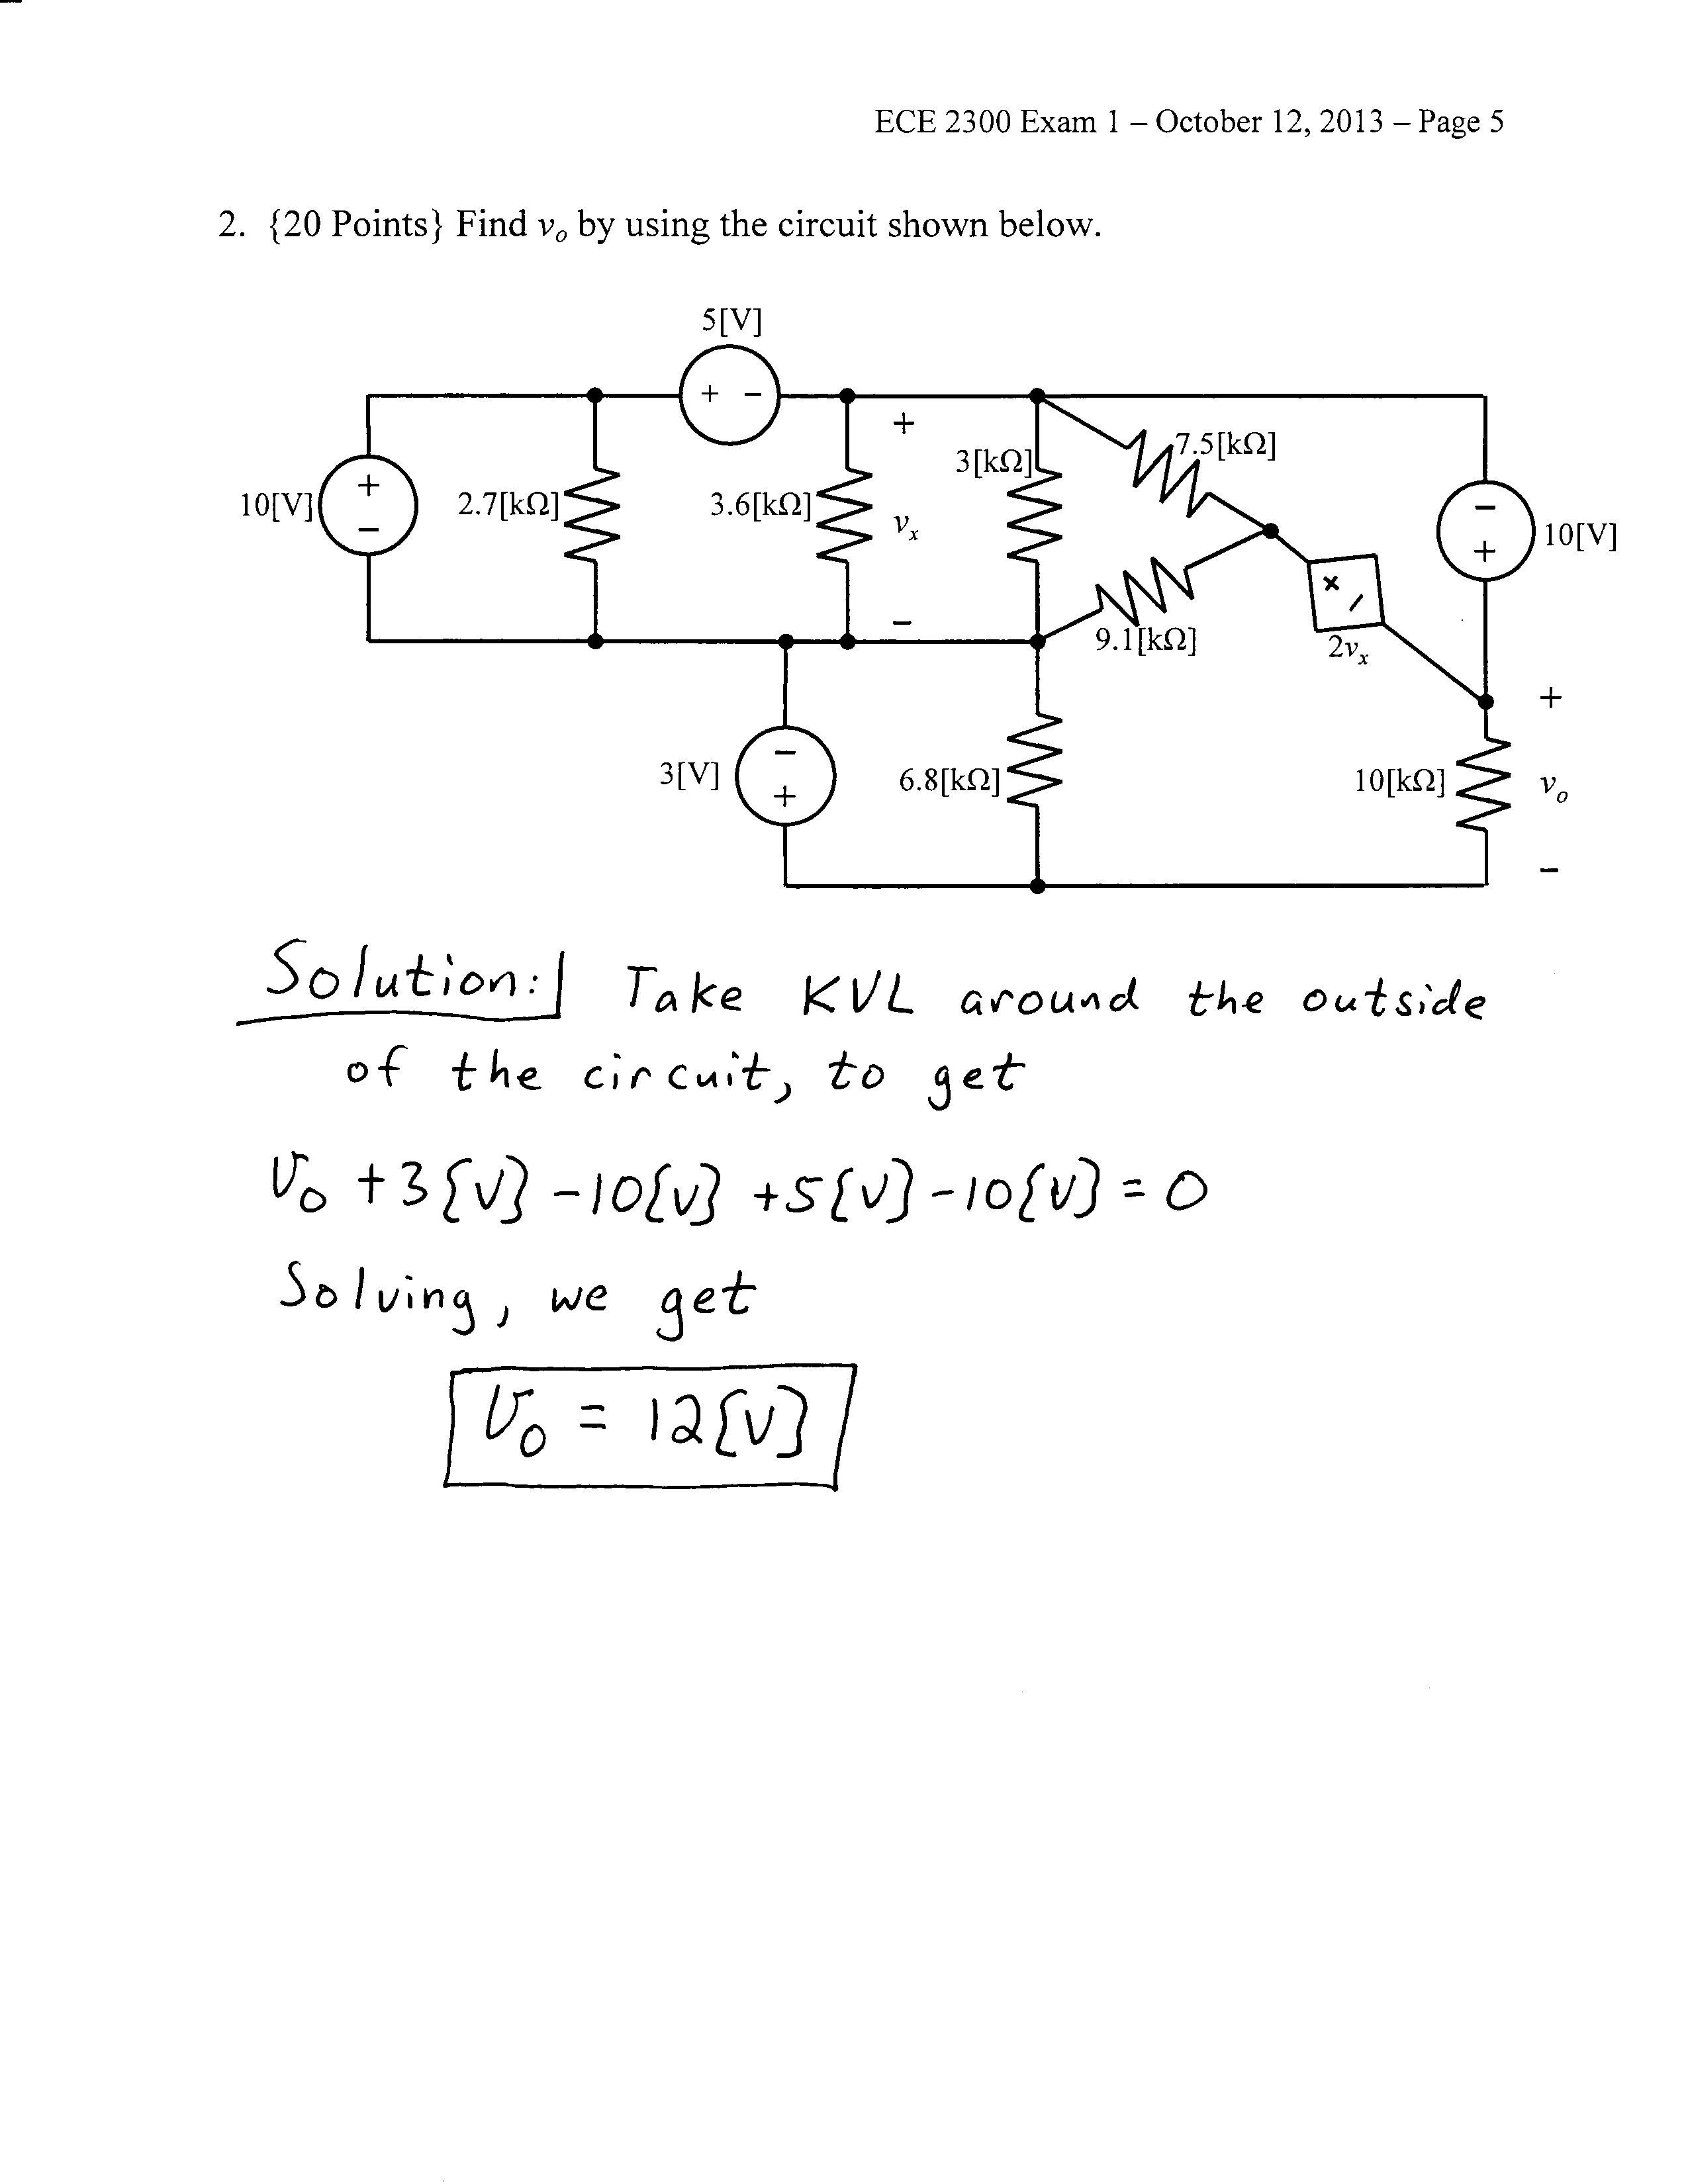 ECE 2300 Exam 1 – October 12, 2013 – Page 5
2. {20 Points} Find vₒ by using the circuit shown below.
5[V]
+ −
+
7.5[kΩ]
3[kΩ]
10[V]
+
−
2.7[kΩ]
3.6[kΩ]
vₓ
−
+
10[V]
+ −
−
9.1[kΩ]
2vₓ
+
3[V]
−
+
6.8[kΩ]
10[kΩ]
vₒ
−
Solution: Take KVL around the outside
of the circuit, to get
vₒ + 3[V] − 10[V] + 5[V] − 10[V] = 0
Solving, we get
vₒ = 12[V]